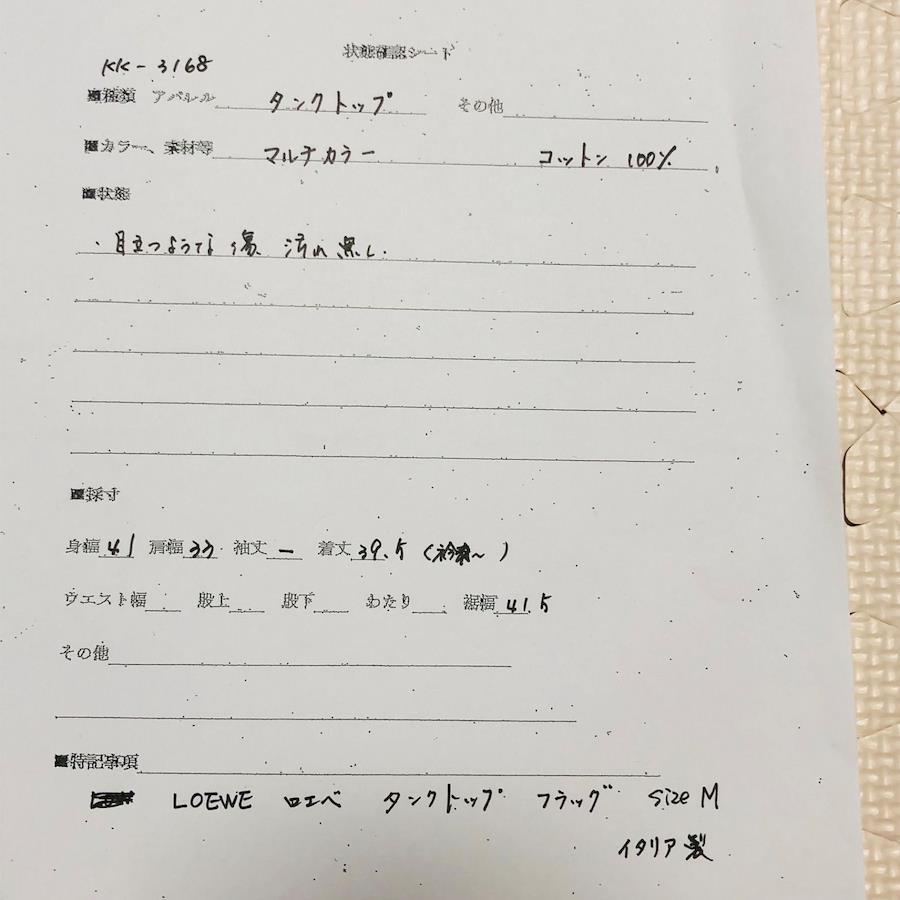 状態確認シート
KK-3168
■種類 アパレル タンクトップ その他
■カラー、素材等 マルチカラー コットン 100%
■状態
・目立つような傷、汚れ無し.
■採寸
身幅 41 肩幅 33 袖丈 ー 着丈 39.5 (衿裏~)
ウエスト幅 股上 股下 わたり 裾幅 41.5
その他
■特記事項
LOEWE ロエベ タンクトップ フラッグ size M
イタリア製